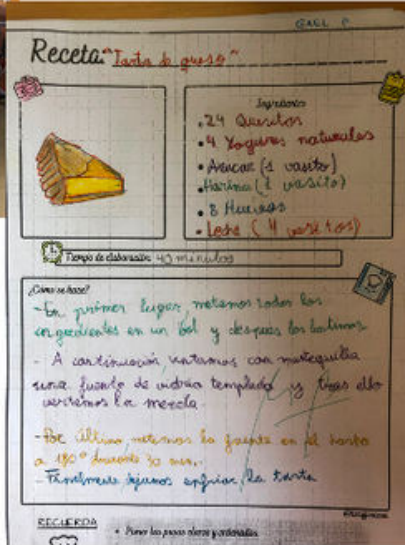 GAEL P.
Receta: "Tarta de queso"
Ingredientes
• 24 Quesitos
• 4 Yogures naturales
• Azucar (1 vasito)
• Harina (1 vasito)
• 8 Huevos
• Leche (4 vasitos)
Tiempo de elaboración: 40 minutos
¿Cómo se hace?
- En primer lugar, metemos todos los
ingredientes en un bol y después los batimos
- A continuación, untamos con mantequilla
una fuente de vidrio templado y tras ello
vertemos la mezcla.
- Por último, metemos la fuente en el horno
a 180° durante 30 min.
- Finalmente dejamos enfriar la tarta
RECUERDA
• Poner los pasos claros y ordenados